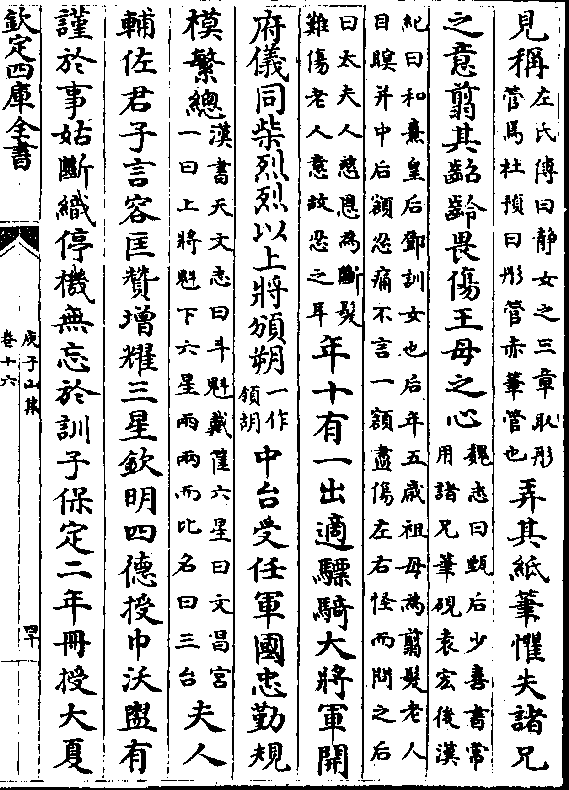 見稱左氏傳曰靜女之三章取彤管焉杜預曰彤管赤筆管也弄其紙筆懼失諸兄
之意翦其齠齡畏傷王母之心魏志曰甄后少善書常用諸兄筆硯袁宏後漢
紀曰和熹皇后鄧訓女也后年五歲祖母為翦髮老人目瞑并中后額忍痛不言一額盡傷左右怪而問之后
曰太夫人慈恩為斷髮難傷老人意故忍之耳年十有一出適驃騎大將軍開
府儀同柴烈烈以上將頒朔一作領胡中台受任軍國忠勤規
模繁總漢書天文志曰斗魁戴匡六星曰文昌宮一曰上將魁下六星兩兩而比名曰三台夫人
輔佐君子言容匡贊增耀三星欽明四德授巾沃盥有
謹於事姑斷織停機無忘於訓子保定二年冊授大夏
欽定四庫全書
庾子山集
卷十六
四十